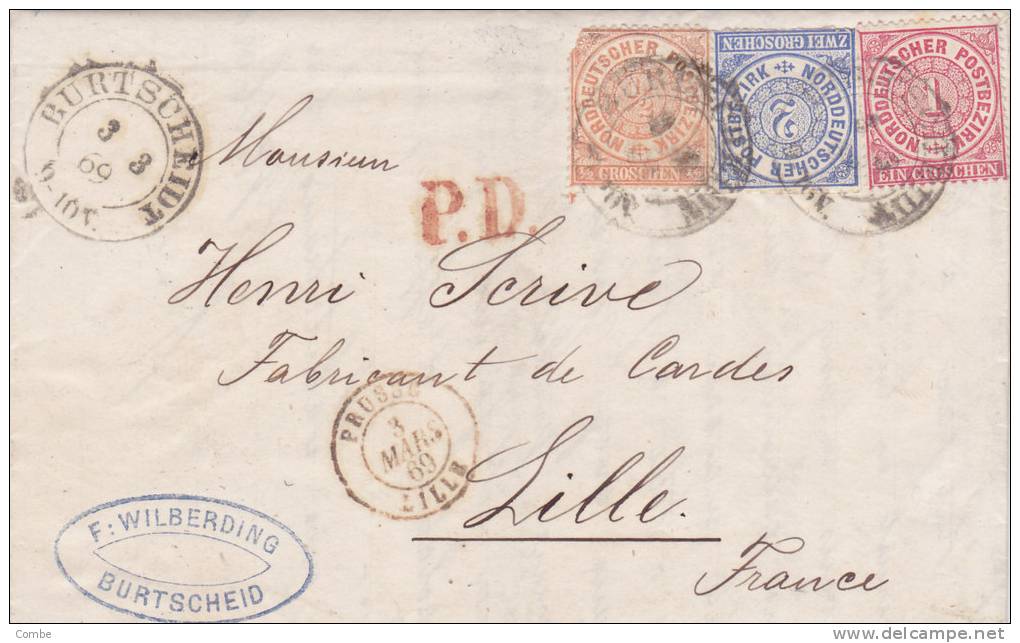 BURTSCHEIDT
3 3
69
9-10V.
NORDDEUTSCHER POSTBEZIRK
½ GROSCHEN
NORDDEUTSCHER POSTBEZIRK
2
ZWEI GROSCHEN
NORDDEUTSCHER POSTBEZIRK
1
EIN GROSCHEN
Monsieur
P.D.
Henri Scrive
Fabricant de Cardes
PRUSSE
3
MARS
69
LILLE
Lille.
France
F: WILBERDING
BURTSCHEID
Combe
delcampe.net